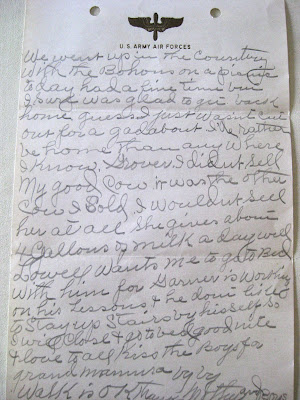 U.S. ARMY AIR FORCES
We went up in the Country
With the Bohons on a picnic
today had a fine time but
I sure was glad to get back
home guess I just wasn't cut
out for a gadabout I'de rather
be home than any where
I know. Grover I didnt Sell
My good Cow it was the other
Cow I Sold. I wouldnt Sell
her at all She gives about
4 Gallons of milk a day well
Lowell Wants me to go to Bed
With him for Garner is Working
on his Lessons & he dont like
to Stay up Stairs by his self So
I will Close & go to bed good nite
& love to all kiss the Boys for
grand mamma by by
Walk is O.K.